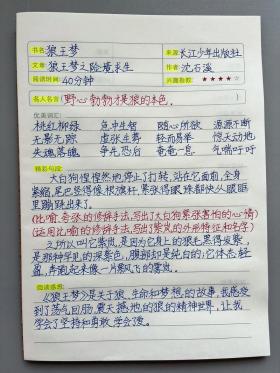 书名: 狼王梦 来源: 长江少年出版社
文章: 狼王梦之险境求生 作者: 沈石溪
阅读时间: 40分钟 兴趣指数: ★★★★☆
名人名言: 野心勃勃才是狼的本色.
优美词汇:
桃红柳绿 危中生智 随心所欲 源源不断
无影无踪 虚张生势 轻而易举 惊天动地
失魂落魄 争先恐后 奄奄一息 气喘吁吁
精彩句段:
大白狗惶惶然地停下打转,站在它面前,全身
紧缩,尾巴竖得像根旗杆,紧张得眼珠都快从眼眶
里蹦跳出来了。
(比喻、夸张的修辞手法,写出了大白狗紧张害怕的心情)
(运用比喻的修辞手法,写出了紫岚的外形特征和名字)
之所以叫它紫岚,是因为它身上的狼毛黑得发紫,
是那种罕见的深紫色,腹部却是纯白的;它体态轻
盈,奔跑起来像一片飘飞的雾岚。
阅读感想:
《狼王梦》是关于狼、生命和梦想的故事,我感受
到了荡气回肠、震天撼地的狼的精神世界,让我
学会了坚持和勇敢,学会了爱。